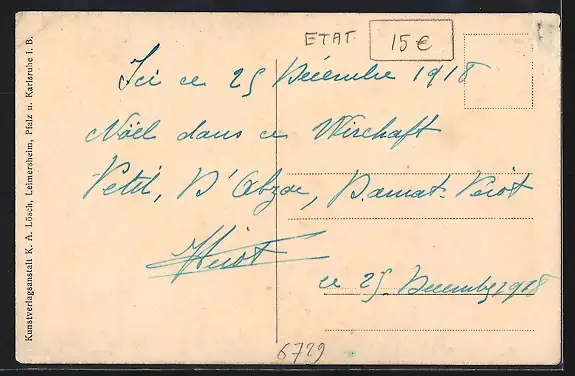 ETAT 15 €
Ici ce 25 Décembre 1918
Noël dans ce Wirchaft
Petit, D'Abzac, Damat-
ce 25 Decembre 1918
6729
Kunstverlagsanstalt K. A. Lösch, Leimersheim, Pfalz u. Karlsruhe i. B.